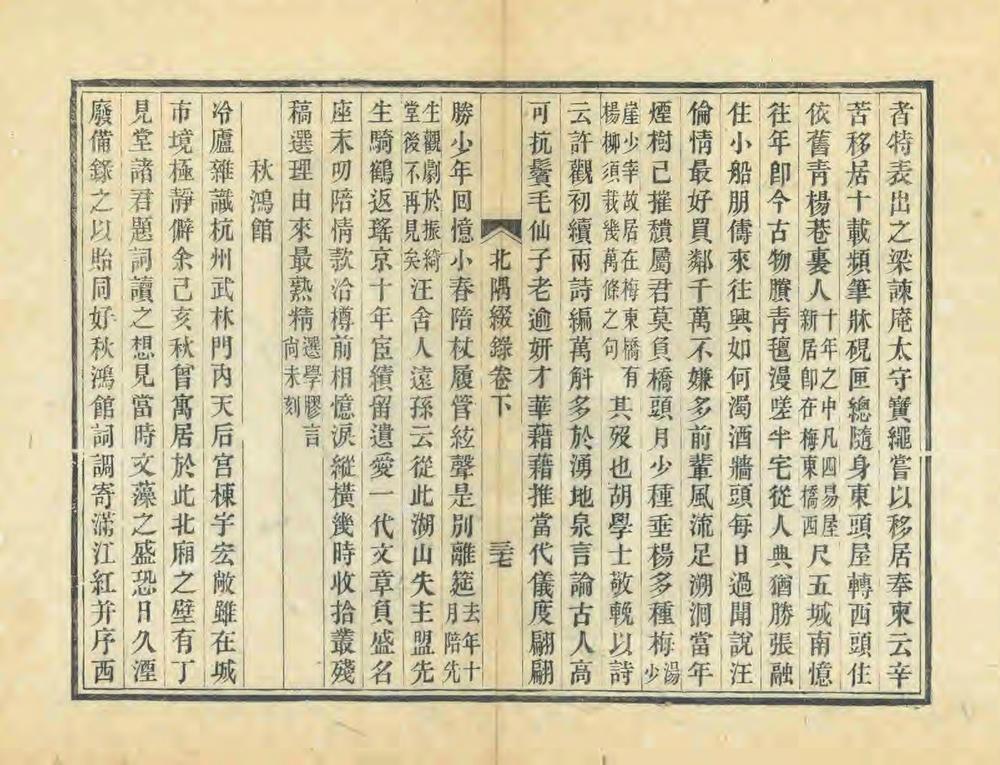 者特表出之梁諫庵太守寶繩嘗以移居奉柬云辛
苦移居十載頻筆牀硯匣總隨身東頭屋轉西頭住
依舊青楊巷裏人十年之中凡四易屋新居卽在梅東橋西尺五城南憶
往年卽今古物賸青氊漫嗟半宅從人典猶勝張融
住小船朋儔來往興如何濁酒牆頭每日過聞說汪
倫情最好買鄰千萬不嫌多前輩風流足溯洄當年
煙樹已摧穨屬君莫負橋頭月少種垂楊多種梅湯少
崖少宰故居在梅東橋有楊柳須栽幾萬條之句其歿也胡學士敬輓以詩
云許觀初續兩詩編萬斛多於湧地泉言論古人高
可抗鬢毛仙子老逾妍才華藉藉推當代儀度翩翩
北隅綴錄卷下
三七
勝少年回憶小春陪杖履管絃聲是別離筵去年十月陪先
生觀劇於振綺堂後不再見矣汪舍人遠孫云從此湖山失主盟先
生騎鶴返瑤京十年宦績留遺愛一代文章負盛名
座末叨陪情款洽樽前相憶淚縱橫幾時收拾叢殘
稿選理由來最熟精選學膠言尚未刻
秋鴻館
冷廬雜識杭州武林門內天后宮棟宇宏敞雖在城
市境極靜僻余己亥秋曾寓居於此北廂之壁有丁
見堂諸君題詞讀之想見當時文藻之盛恐日久湮
廢備錄之以貽同好秋鴻館詞調寄滿江紅并序西